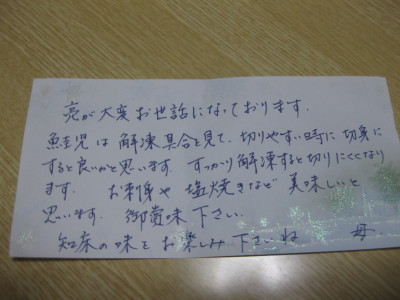 亮が大変お世話になっております。
鮭児は解凍具合を見て、切りやすい時に切身に
すると良いかと思います。すっかり解凍すると切りにくくなり
ます。 お刺身や塩焼きなど美味しいと
思います。 御賞味下さい。
知床の味をお楽しみ下さいね 母